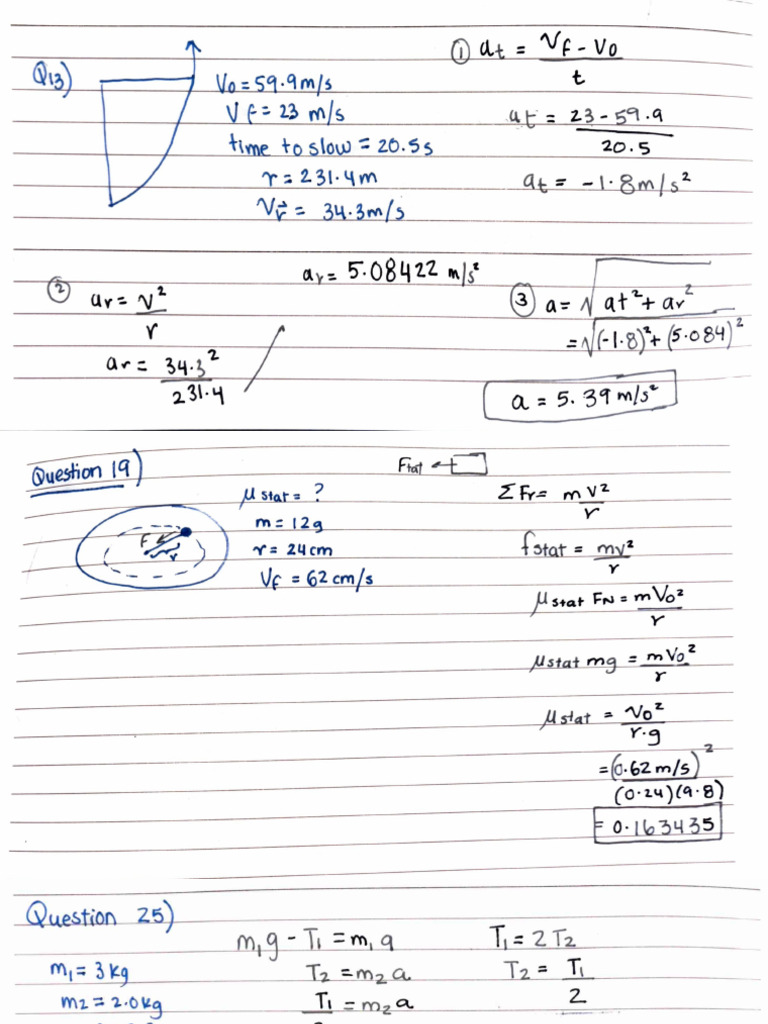 Q13)
V0 = 59.9m/s
Vf = 23 m/s
time to slow = 20.5s
r = 231.4m
Vr⃗ = 34.3m/s
① at = Vf - V0 / t
at = 23 - 59.9 / 20.5
at = -1.8m/s²
② ar = v² / r
ar = 34.3² / 231.4
ar = 5.08422 m/s²
③ a = √at² + ar²
= √(-1.8)² + (5.084)²
a = 5.39 m/s²
Question 19)
F
r
μ stat = ?
m = 12g
r = 24cm
Vf = 62 cm/s
Fstat
Σ Fr = mv² / r
fstat = mv² / r
μstat FN = mV0² / r
μstat mg = mV0² / r
μstat = V0² / r.g
= (0.62 m/s)² / (0.24)(9.8)
= 0.163435
Question 25)
m1 = 3kg
m2 = 2.0kg
m1g - T1 = m1a
T2 = m2a
T1 = m2a
T1 = 2T2
T2 = T1 / 2